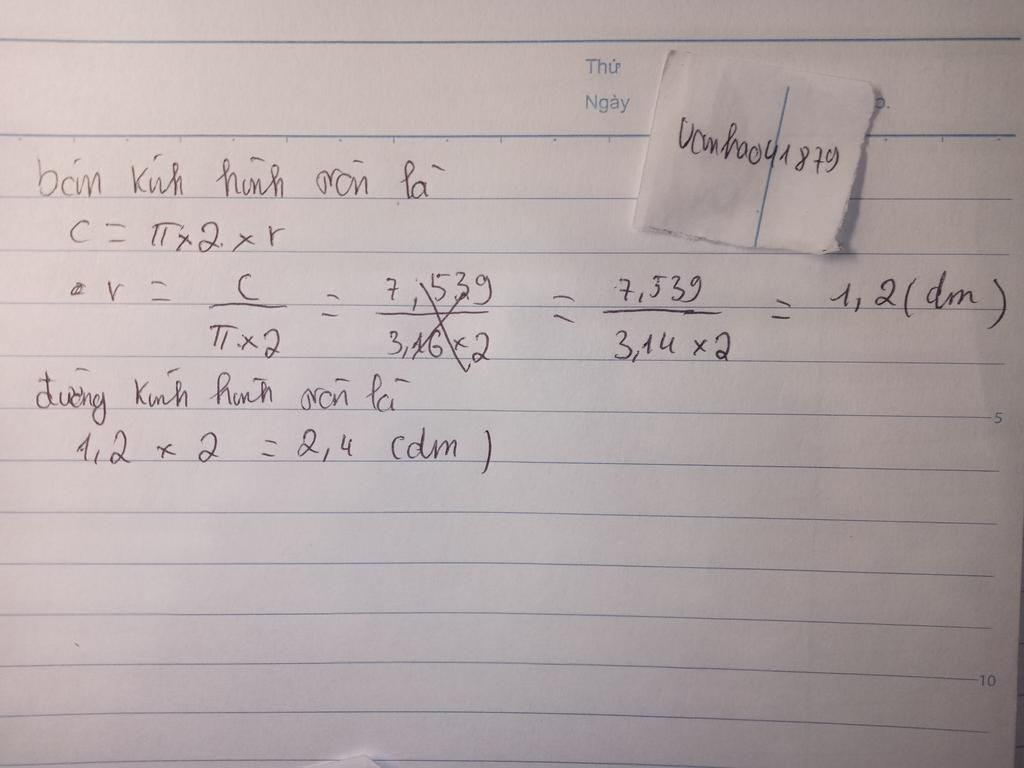 Thứ
Ngày
vanhao041879
bán kính hình tròn là
C = π × 2 × r
r = C / π × 2 = 7,539 / 3,16 × 2 = 7,539 / 3,14 × 2 = 1,2 (dm)
đường kính hình tròn là
5
1,2 × 2 = 2,4 (dm)
10